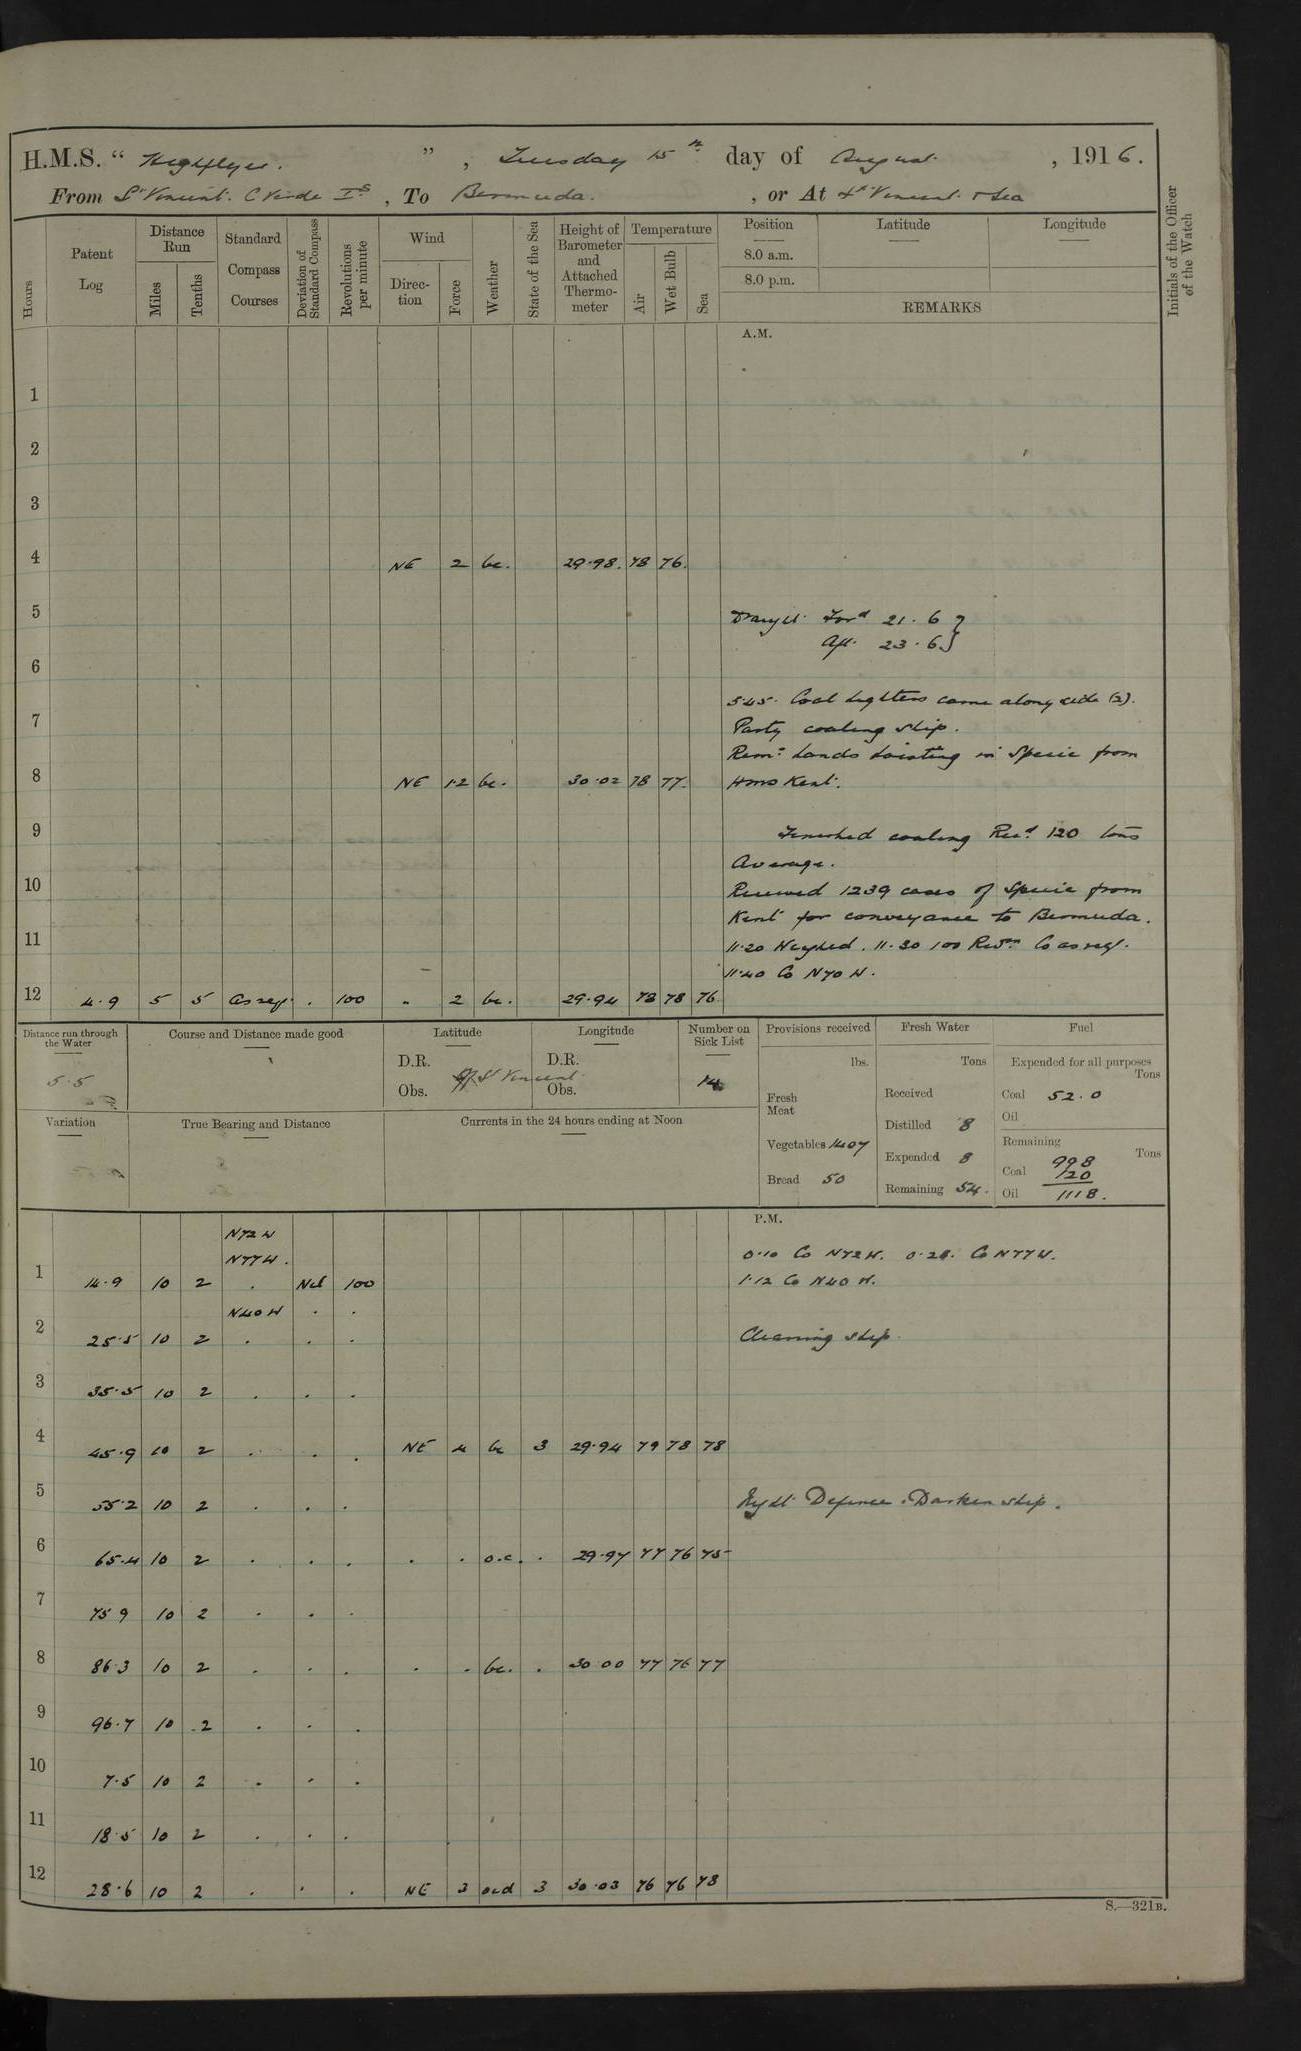 H.M.S. " Highflyer. ", Tuesday 15th day of August, 1916.
From St Vincent. C Verde Is, To Bermuda. , or At St Vincent & Sea
Hours
Patent Log
Distance Run
Miles
Tenths
Standard Compass Courses
Deviation of Standard Compass
Revolutions per minute
Wind
Direction
Force
Weather
State of the Sea
Height of Barometer and Attached Thermometer
Temperature
Air
Wet Bulb
Sea
Position
8.0 a.m.
8.0 p.m.
Latitude
Longitude
REMARKS
Initials of the Officer of the Watch
A.M.
1
2
3
4 NE 2 bc. 29.98. 78 76.
5 Draught. Ford 21.6 }
Aft. 23.6 }
6
5.45. Coal Lighters came alongside (2).
7 Party coaling ship.
Remg hands hoisting in Specie from
8 NE 1.2 bc. 30.02 78 77. HMS Kent.
9 Finished coaling Recd 120 tons
Average.
10 Received 1239 cases of Specie from
Kent for conveyance to Bermuda.
11 11.20 Weighed. 11.30 100 Revns Co as req.
11.40 Co N70W.
12 4.9 5 5 As req. . 100 " 2 bc. 29.94 78 78 76
Distance run through the Water
5.5
Course and Distance made good
Latitude
D.R.
Obs.
Longitude
D.R.
Obs.
Off St Vincent.
Number on Sick List
14
Provisions received
lbs.
Fresh Meat
Vegetables 1407
Bread 50
Fresh Water
Tons
Received
Distilled 8
Expended 8
Remaining 54.
Fuel
Expended for all purposes
Tons
Coal 52.0
Oil
Remaining
Tons
998
Coal 120
Oil 1118.
Variation
True Bearing and Distance
Currents in the 24 hours ending at Noon
P.M.
N72W
N77W. 0.10 Co N72W. 0.28. Co N77W.
1 14.9 10 2 . Nil 100 1.12 Co N40W.
N40W . .
2 25.5 10 2 . . . Cleaning ship.
3 35.5 10 2 . . .
4 45.9 10 2 . . . NE 4 bc 3 29.94 79 78 78
5 55.2 10 2 . . . Night Defence. Darken ship.
6 65.4 10 2 . . . . . o.c. . 29.97 77 76 75
7 75 9 10 2 . . .
8 86.3 10 2 . . . . . bc. . 30.00 77 76 77
9 96.7 10 2 . . .
10 7.5 10 2 . . .
11 18.5 10 2 . . .
12 28.6 10 2 . . . NE 3 ocd 3 30.03 76 76 78
S.—321B.